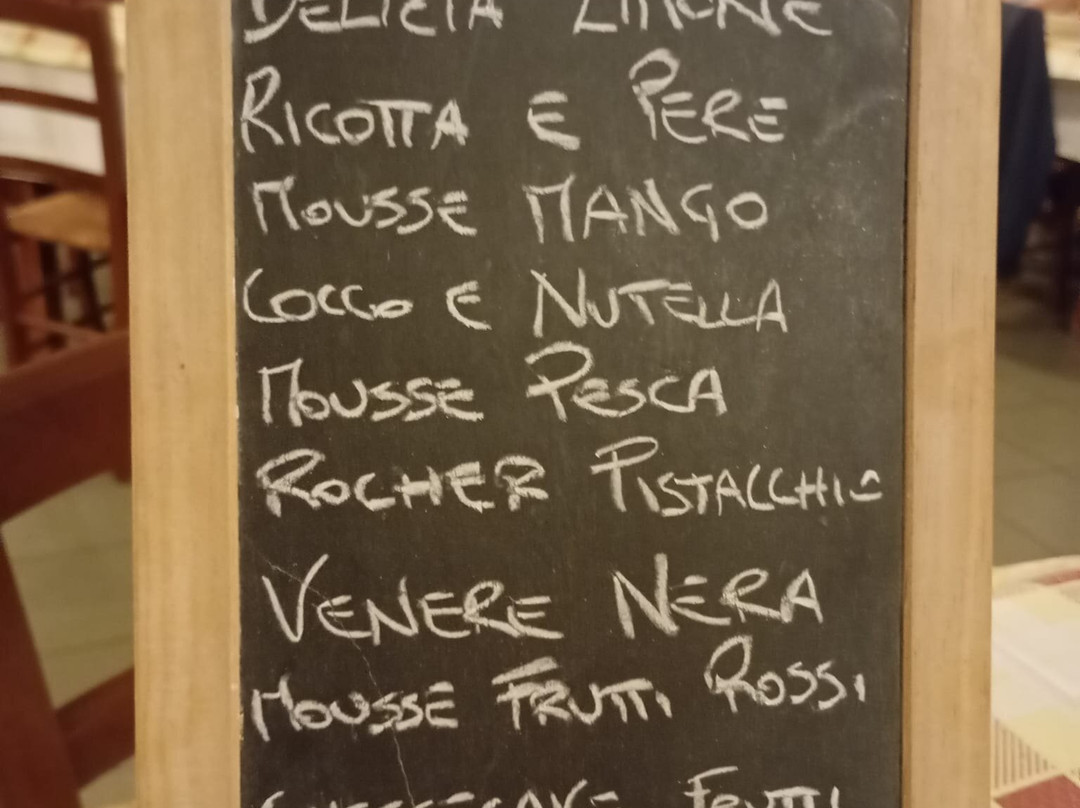 DELIZIA LIMONE
RICOTTA E PERE
MOUSSE MANGO
COCCO E NUTELLA
MOUSSE PESCA
ROCHER PISTACCHIO
VENERE NERA
MOUSSE FRUTTI ROSSI
CHEESECAKE FRUTTI